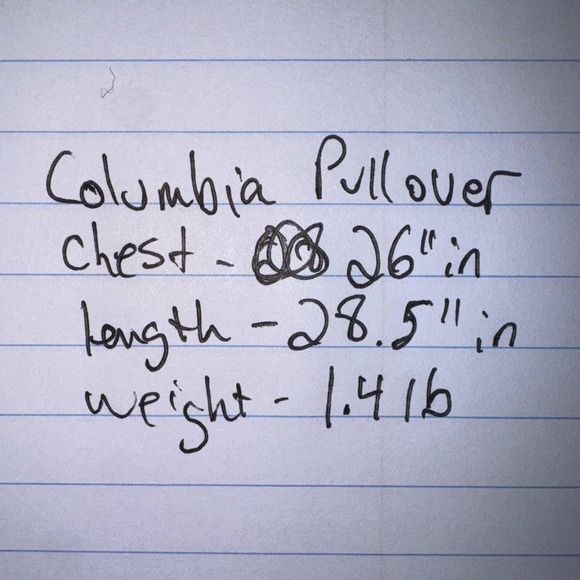 Columbia Pullover
chest - 26" in
Length - 28.5" in
weight - 1.4 lb